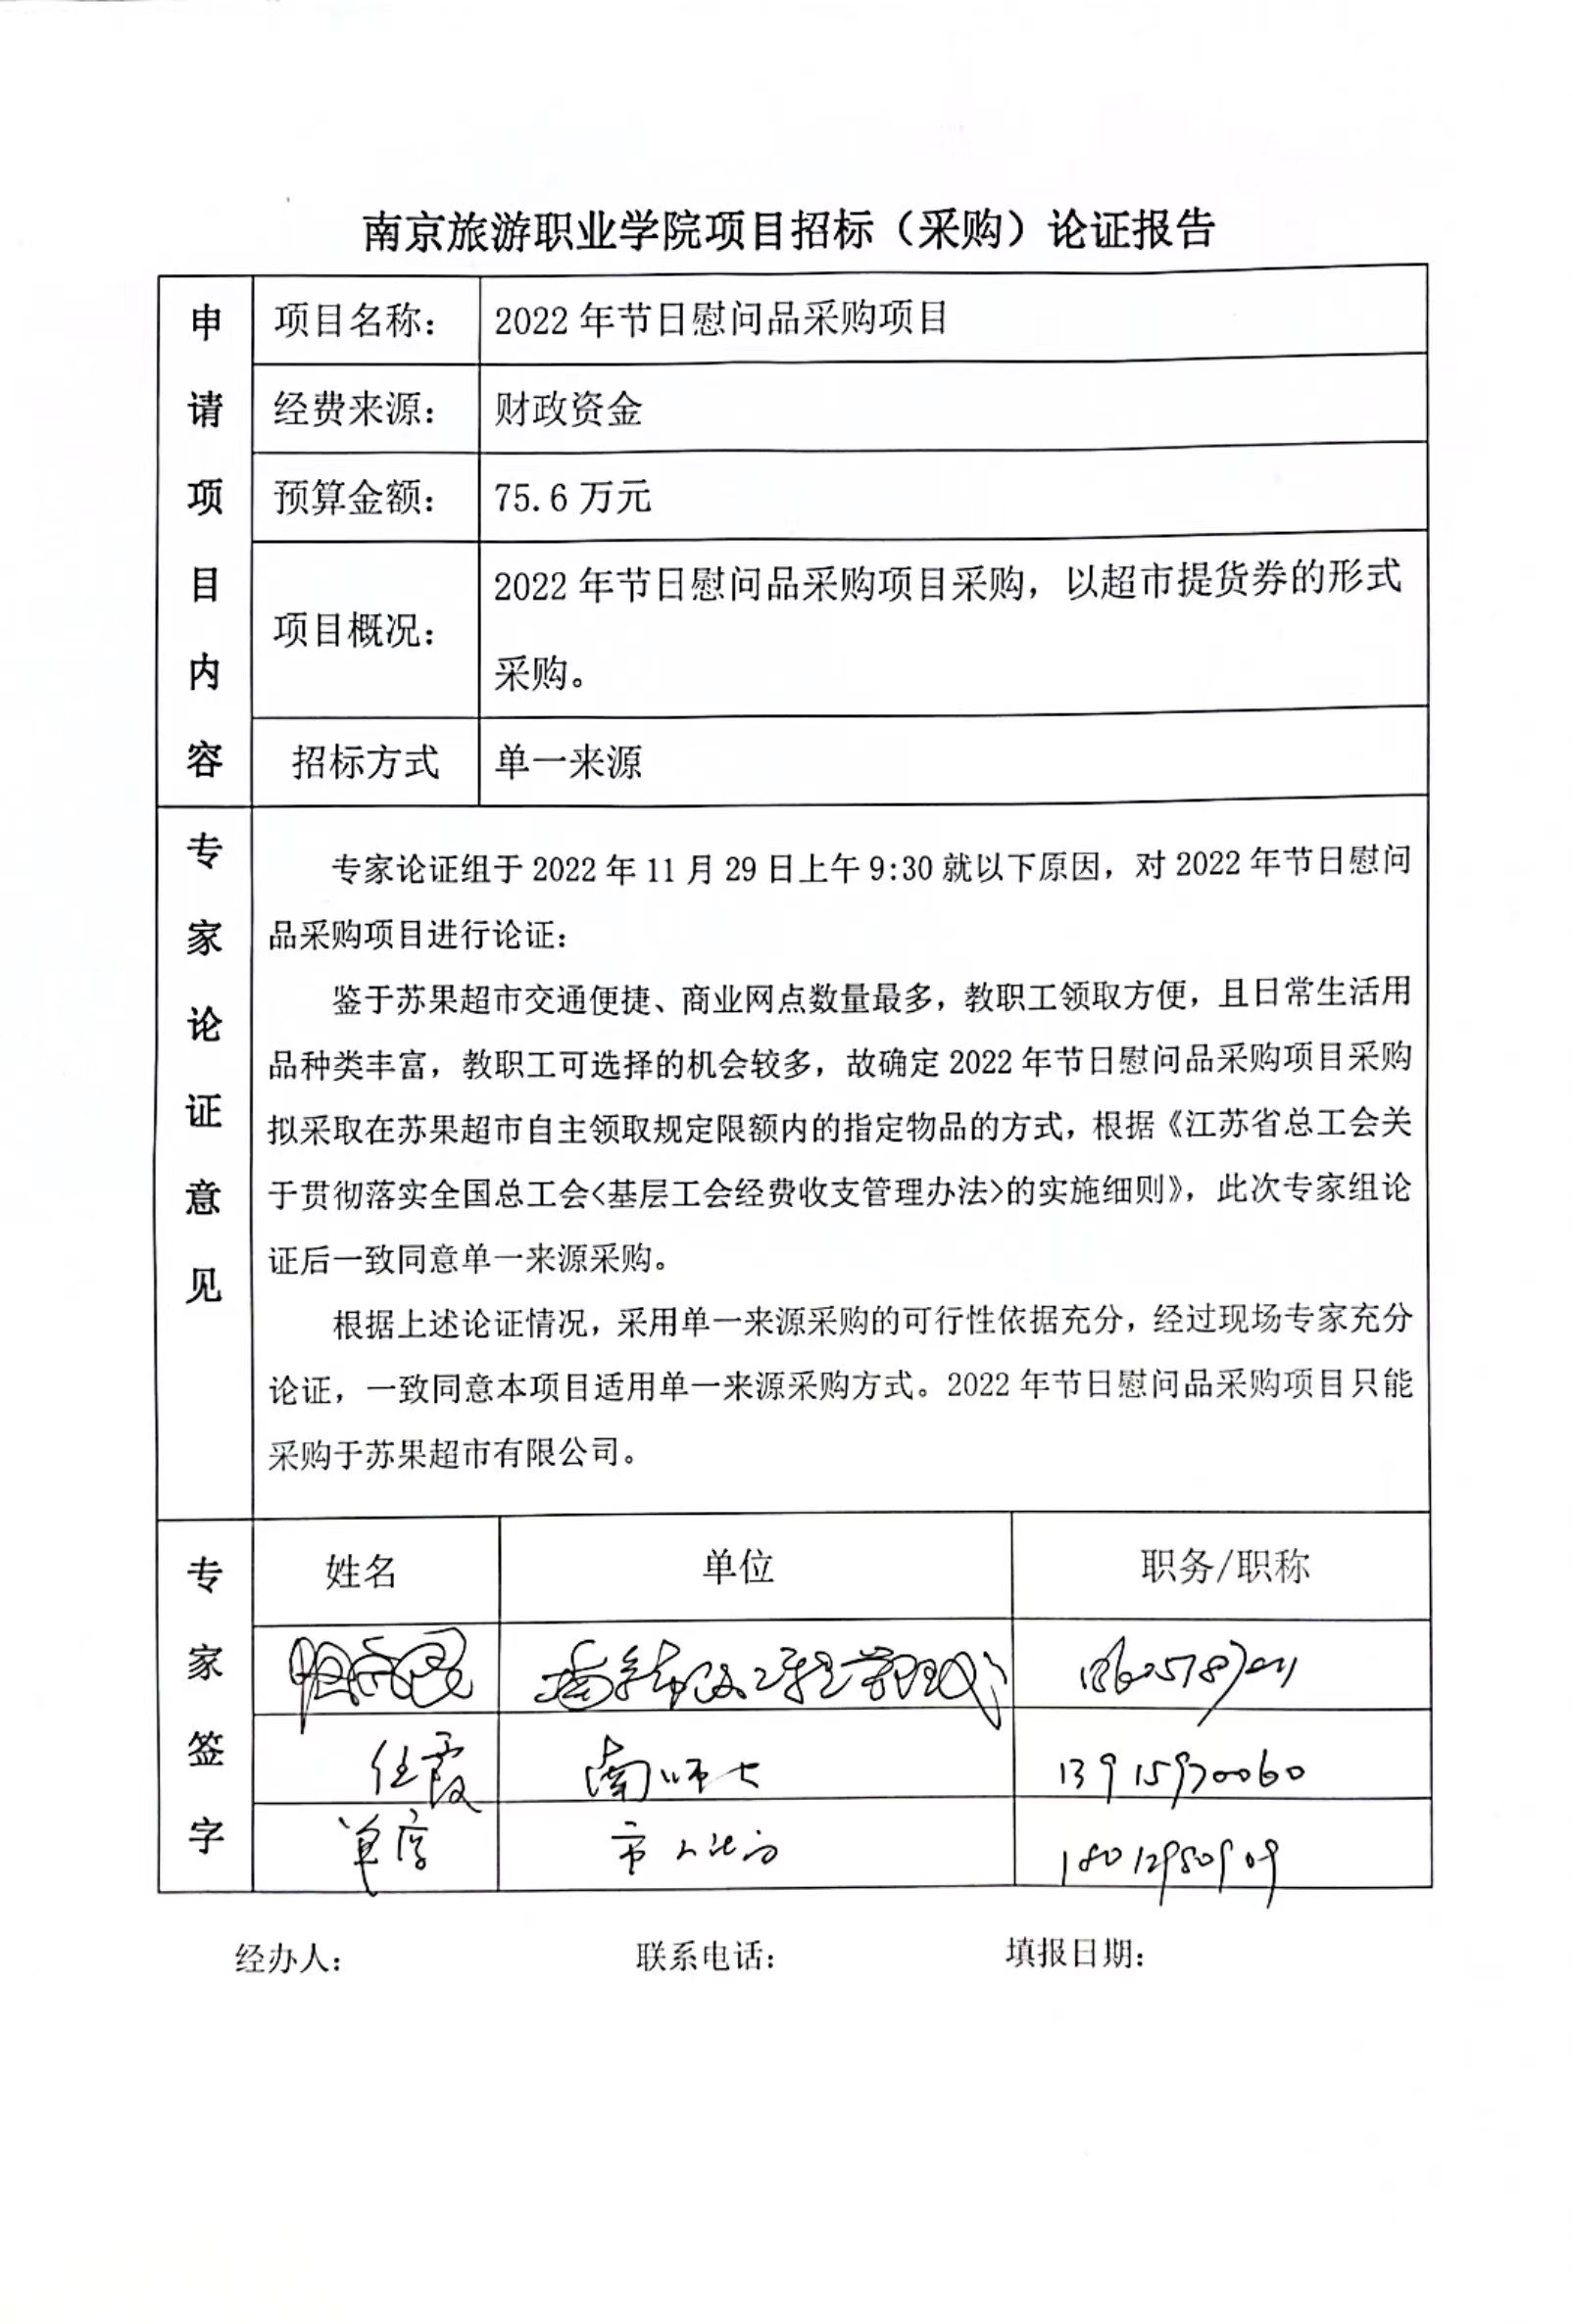 南京旅游职业学院项目招标（采购）论证报告
申请项目内容
项目名称： 2022 年节日慰问品采购项目
经费来源： 财政资金
预算金额： 75.6 万元
项目概况： 2022 年节日慰问品采购项目采购，以超市提货券的形式
采购。
招标方式 单一来源
专家论证意见
专家论证组于 2022 年 11 月 29 日上午 9:30 就以下原因，对 2022 年节日慰问
品采购项目进行论证：
鉴于苏果超市交通便捷、商业网点数量最多，教职工领取方便，且日常生活用
品种类丰富，教职工可选择的机会较多，故确定 2022 年节日慰问品采购项目采购
拟采取在苏果超市自主领取规定限额内的指定物品的方式，根据《江苏省总工会关
于贯彻落实全国总工会<基层工会经费收支管理办法>的实施细则》，此次专家组论
证后一致同意单一来源采购。
根据上述论证情况，采用单一来源采购的可行性依据充分，经过现场专家充分
论证，一致同意本项目适用单一来源采购方式。2022 年节日慰问品采购项目只能
采购于苏果超市有限公司。
专家签字
姓名 单位 职务/职称
任霞 南师大 13915970060
单 市 18012950909
经办人： 联系电话： 填报日期：